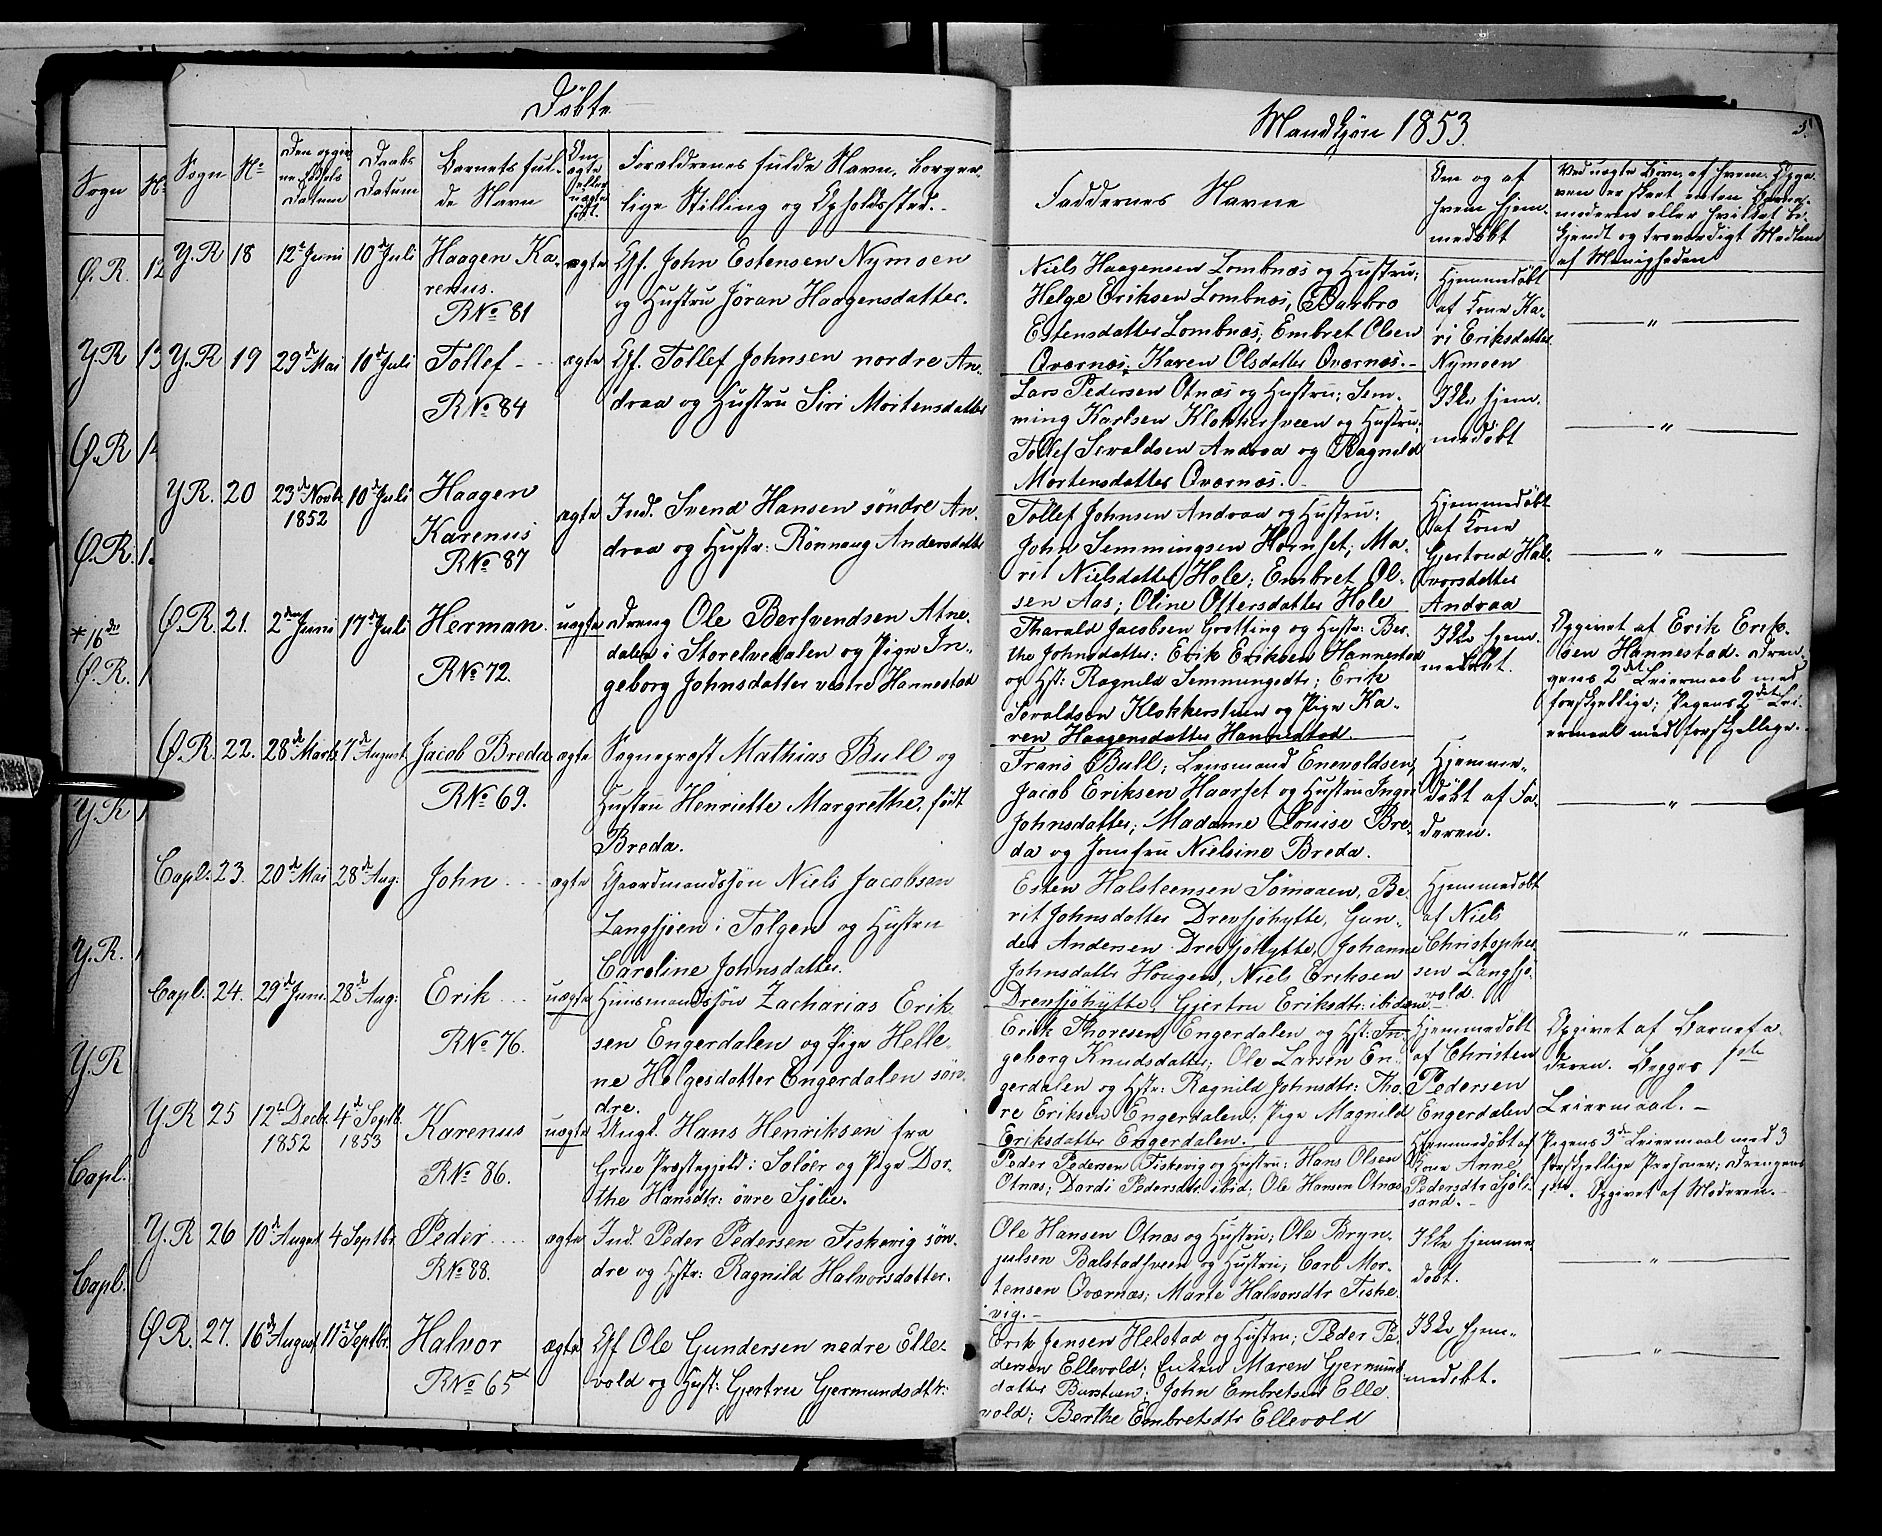 Døbte
Mandkjøn 1853.
5.
Sogn
No
Sogn
No
Den opgiv-
ne Fødsels
Datum
Daabs
Datum
Barnets ful-
de Navn
Om
ægte
eller
uægte
født.
Forældrenes fulde Navn, borger-
lige Stilling og Opholdssted.
Faddernes Navne
Om og af
hvem hjem-
medøbt
Ved uægte Børn, af hvem Opga-
ven er skeet, enten Barne-
moderen eller hvilket be-
kjendt og troværdigt Medlem
af Menigheden
Ø.R. 12
Y.R 13
Ø.R 14
Ø.R.
*16de
Ø.R.
Y.R
Y.R.
Y.R
Capl.
Capl.
Y.R 18 12te Juni 10de Juli Haagen Ka-
renus.
RNo 81
ægte
Gf. John Estensen Nymoen
og Hustru Jøran Haagensdatter.
Niels Haagensen Lombnæs og Hustru;
Helge Eriksen Lombnæs, Barbro
Estensdatter Lombnæs; Embret Olsen
Qværnæs; Karen Olsdatter Qværnæs.
Hjemmedøbt
af Kone Ka-
ri Eriksdatter
Nymoen
— " —
Y.R 19 29de Mai 10de Juli Tollef
RNo 84
ægte
Gf. Tollef Johnsen nordre An-
draa og Hustru Siri Mortensdatter
Lars Pedersen Otnæs og Hustru; Sem-
ming Karlsen Klokkersveen og Hustru;
Tollef Sevaldsen Andraa og Ragnild
Mortensdatter Qværnæs.
Ikke hjem-
medøbt
— " —
Y.R. 20 23de Novb. 1852 10de Juli Haagen
Karenus
RNo 87
ægte
Ind. Svend Hansen søndre An-
draa og Hustr: Rønnaug Andersdatter
Tollef Johnsen Andraa og Hustru;
John Semmingsen Hornset; Ma-
rit Nielsdatter Hole; Embret Ol-
sen Aas; Oline Ottersdatter Hole
Hjemmedøbt
af Kone
Gjertrud Hal-
vorsdatter
Andraa
— " —
Ø.R. 21. 2den Juni 17de Juli Herman.
RNo 72.
uægte
Dreng Ole Bersvendsen Atne-
dalen i Storelvedalen og Pige In-
geborg Johnsdatter vestre Hannestad
Tharald Jacobsen Grøtting og Hustr: Ber-
the Johnsdatter: Erik Eriksen Hannestad
og Hst: Ragnild Semmingsdtr; Erik
Sevaldsen Klokkerstuen og Pige Ka-
ren Haagensdatter Hannestad.
Ikke hjem-
medøbt.
Opgivet af Erik Erik-
sen Hannestad. Dren-
gens 2det Leiermaal med
forskjellige; Pigens 2det Lei-
ermaal med forskjellige.
Ø.R. 22. 28de Marts 7de August Jacob Breda
RNo 69.
ægte
Sogneprest Mathias Bull og
Hustru Henriette Margrethe, født
Breda.
Frans Bull; Lensmand Enevoldsen,
Jacob Eriksen Haarset og Hustru Ingri
Johnsdatter; Madame Louise Bre-
da og Jomfru Nielsine Breda.
Hjemme-
døbt af Fa-
deren.
— " —
Capl. 23. 20de Mai 28de Aug: John
ægte
Gaardmandssøn Niels Jacobsen
Langsjøen i Tolgen og Hustru
Caroline Johnsdatter.
Esten Halsteensen Sømaaen, Be-
rit Johnsdatter Drevsjøhytte, Gun-
der Andersen Drevsjøhytte, Johanne
Johnsdatter Hougen, Niels Eriksen
Drevsjøhytte, Gjertru Eriksdtr: ibidem
Hjemmedøbt
af Niels
Christopher-
sen Langsjø-
vold.
— " —
Capl. 24. 29de Juni. 28de Aug: Erik
RNo 76.
uægte
Huusmandssøn Zacharias Erik-
sen Engerdalen og Pige Helle-
ne Helgesdatter Engerdalen søn-
dre.
Erik Thoresen Engerdalen og Hst: In-
geborg Knudsdatter; Ole Larsen En-
gerdalen og Hstr: Ragnild Johnsdtr: Tho-
re Eriksen Engerdalen; Pige Magnild
Eriksdatter Engerdalen.
Hjemmedøbt
af Christen
Pedersen
Engerdalen
Opgivet af Barnefa-
deren. Begges 1ste
Leiermaal.
Y.R 25 12te Decbr. 1852 4de Septb. 1853 Karenus
RNo 86.
uægte
Ungk. Hans Henriksen fra
Grue Præstegjeld i Solør og Pige Dor-
the Hansdtr: øvre Sjølie.
Peder Pedersen Fiskevig og Hustru: Hans Olsen
Otnæs; Dordi Pedersdtr: ibid; Ole Hansen Otnæs
Hjemmedøbt af
Kone Anne
Pedersdtr Sjøli-
sand.
Pigens 3de Leiermaal med 3
forskjellige Personer; Drengens
1ste. Opgivet af Moderen.
Y.R 26 10de August 4 Septbr. Peder
RNo 88.
ægte
Ind. Peder Pedersen Fiskevig søn-
dre og Hstr: Ragnild Halvorsdatter.
Ole Hansen Otnæs og Hustru; Ole Bryn-
julsen Balstadsveen og Hustru; Carl Mor-
tensen Qværnæs; Marte Halvorsdtr Fiske-
vig.
Ikke hjemme-
døbt.
— " —
Ø.R. 27. 16de August 11te Septbr. Halvor
RNo 65
ægte
Gf Ole Gundersen nedre Elle-
vold og Hust: Gjertru Gjermundsdtr:
Erik Jensen Helstad og Hustru; Peder Pe-
dersen Ellevold; Enken Maren Gjermund-
datter Burstuen; John Embretsen Elle-
vold; Berthe Embretsdtr Ellevold
Ikke hjem-
medøbt.
— " —